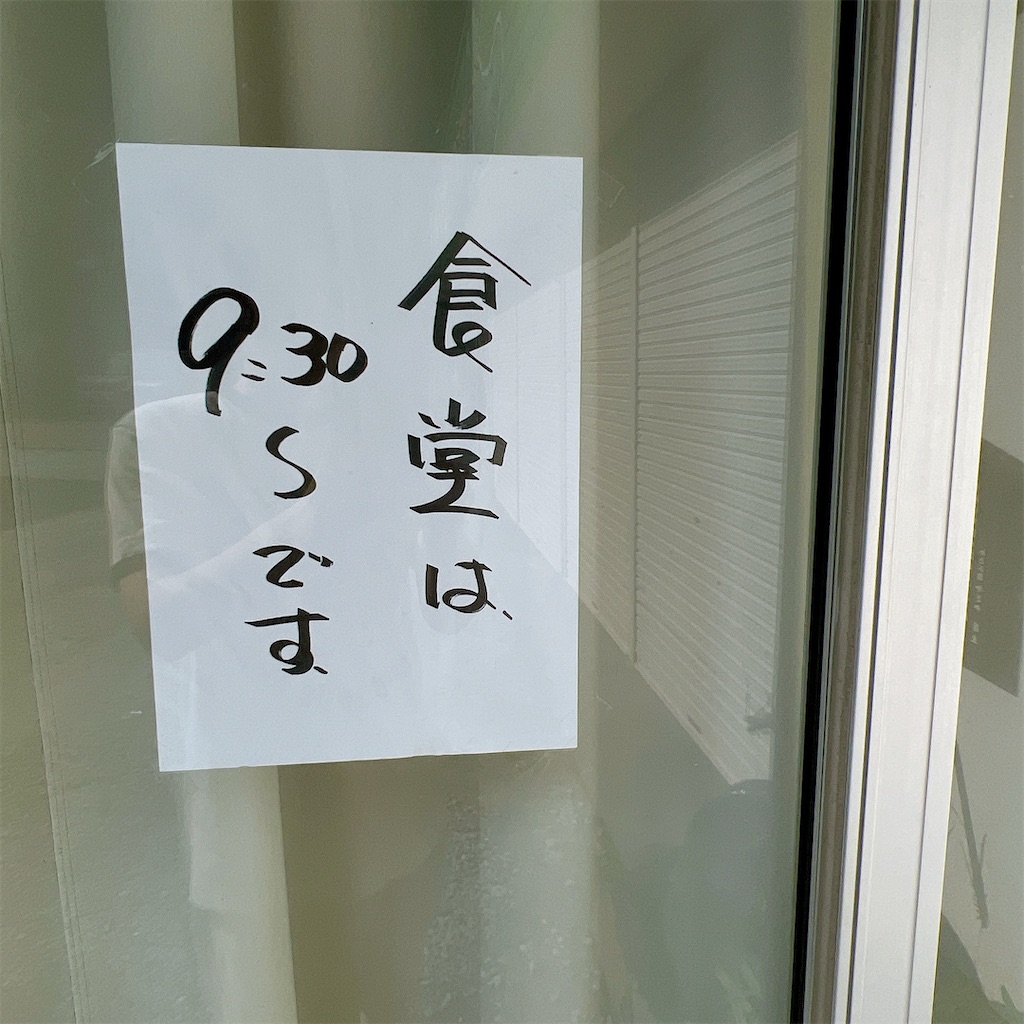 食堂は、
9:30〜です、